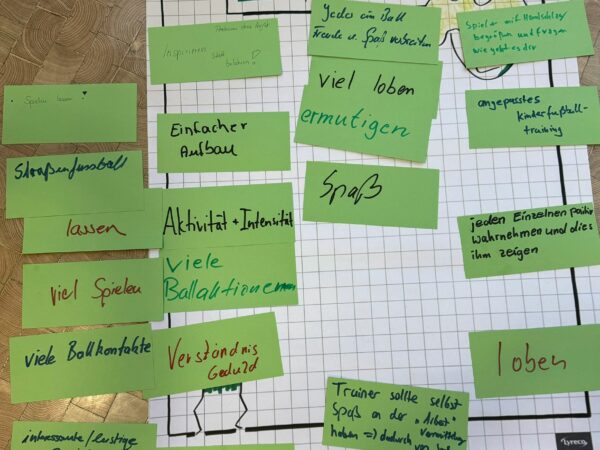 Spielen lassen!
Straßenfussball
lassen
viel Spielen
viele Ballkontakte
interessante/lustige
Inspirieren statt
belehren!
Einfacher
Aufbau
Aktivität + Intensität
viele
Ballaktionen
Verständnis
Geduld
Jedes ein Ball
Freude u. Spaß verbreiten
viel loben
ermutigen
Spaß
Trainer sollte selbst
Spaß an der „Arbeit"
haben => dadurch Vermittlung
von
Spieler mit Handschlag
begrüßen und fragen
wie geht es dir
angepasstes
Kinderfußball-
training
jeden Einzelnen positiv
wahrnehmen und dies
ihm zeigen
loben
Lyreco